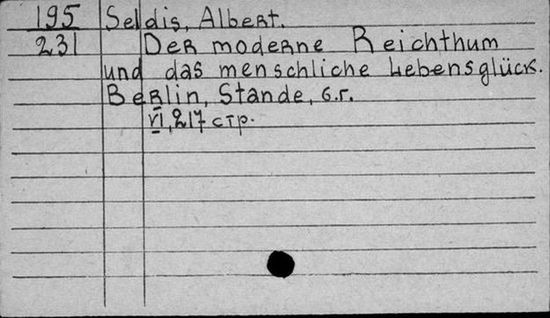 195 Seldis, Albert.
231 Der moderne Reichthum
und das menschliche Lebensglück.
Berlin, Stande, б.г.
VI, 217 стр.